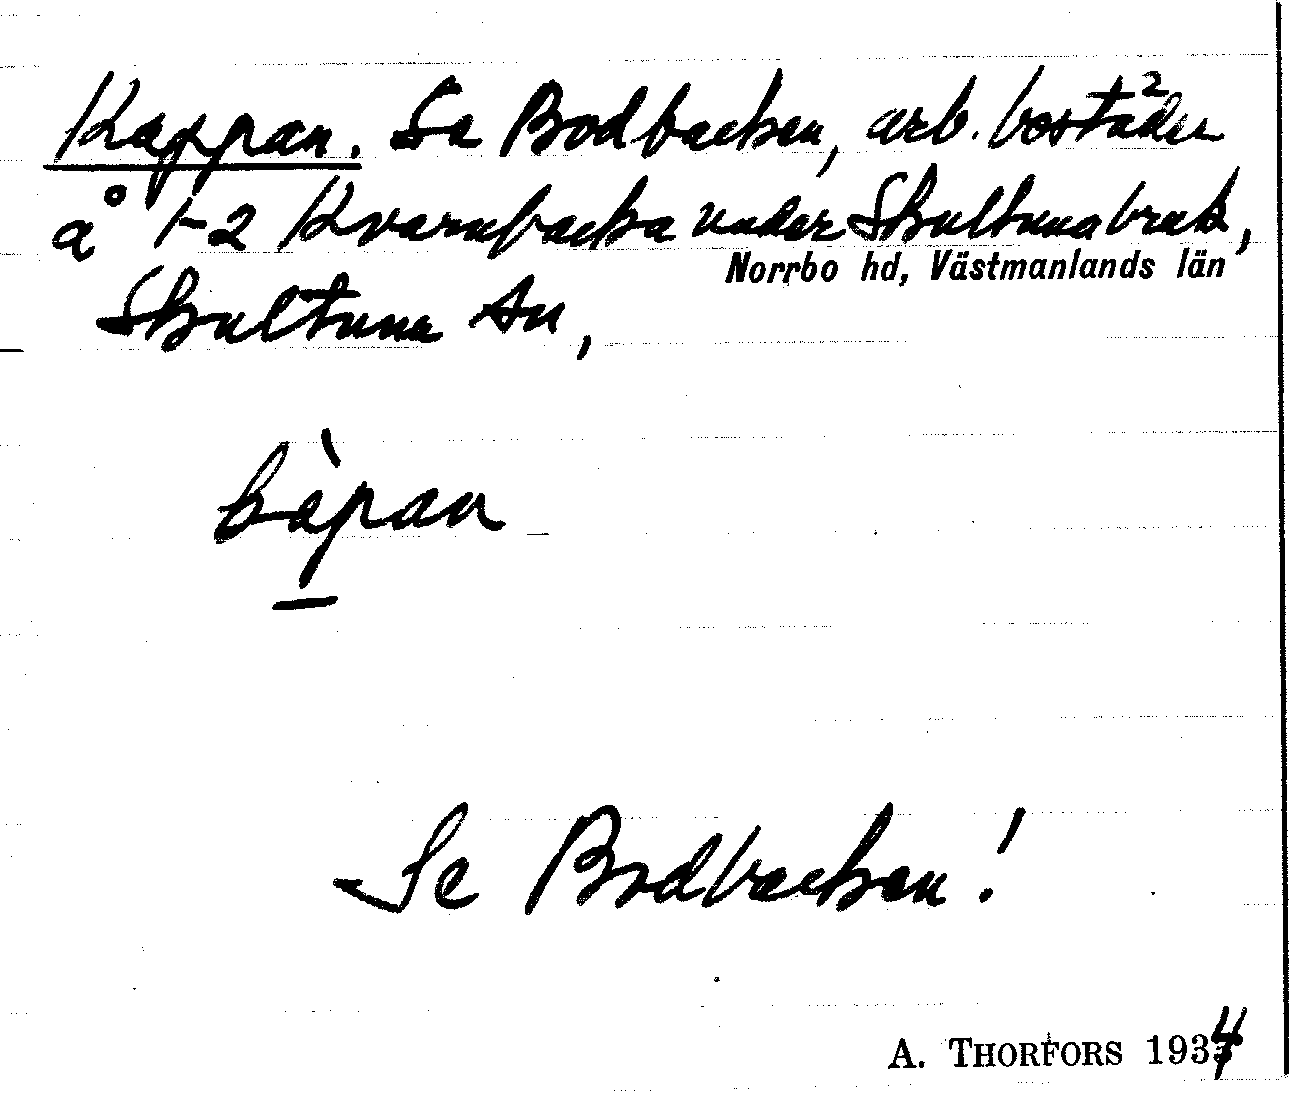 Kappan. Se Bodbacken, arb. bostäder
å 1-2 Kvarnbacka under Skultuna bruk,
Norrbo hd, Västmanlands län
Skultuna sn,
kàpan
Se Bodbacken!
A. THORFORS 1934